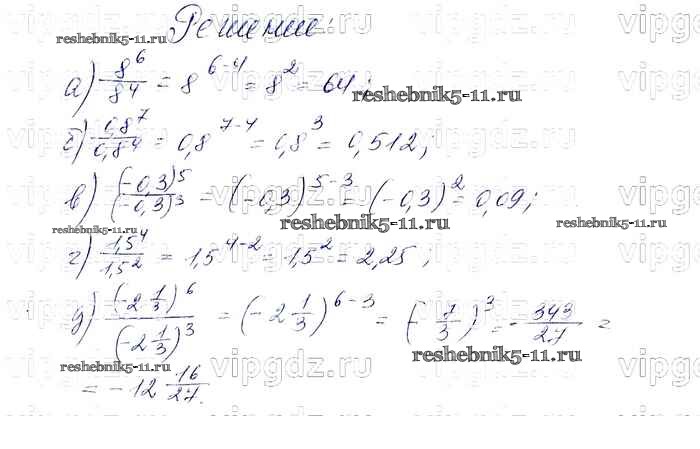 Решение:
а) 8^6/8^4 = 8^(6-4) = 8^2 = 64;
б) 0,8^7/0,8^4 = 0,8^(7-4) = 0,8^3 = 0,512;
в) (-0,3)^5/(-0,3)^3 = (-0,3)^(5-3) = (-0,3)^2 = 0,09;
г) 1,5^4/1,5^2 = 1,5^(4-2) = 1,5^2 = 2,25;
д) (-2 1/3)^6/(-2 1/3)^3 = (-2 1/3)^(6-3) = (-7/3)^3 = -343/27 =
= -12 16/27.
reshebnik5-11.ru
reshebnik5-11.ru
reshebnik5-11.ru
reshebnik5-11.ru
reshebnik5-11.ru
reshebnik5-11.ru
reshebnik5-11.ru
vipgdz.ru